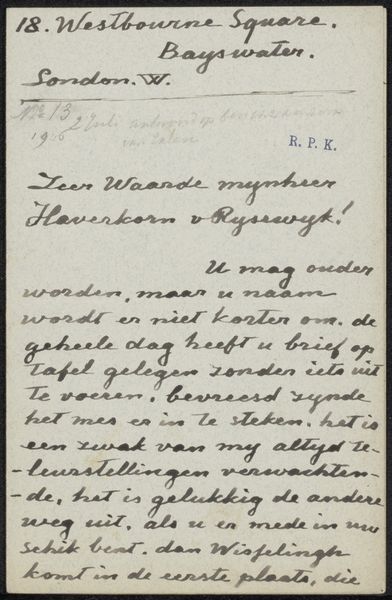 18. Westbourne Square.
Bayswater.
London. W.
No 13
1906
R. P. K.
Zeer Waarde mynheer
Haverkorn v Rysewyk!
U mag ouder
worden, maar u naam
wordt er niet korter om. de
geheele dag heeft u brief op
tafel gelegen zonder iets uit
te voeren, bevreesd zynde
het mes er in te steken. het is
een zwak van my altyd te-
-leurstellingen verwachten-
-de, het is gelukkig de andere
weg uit, als u er mede in uw
schik bent. dan Wisselingh
komt in de eerste plaats, die